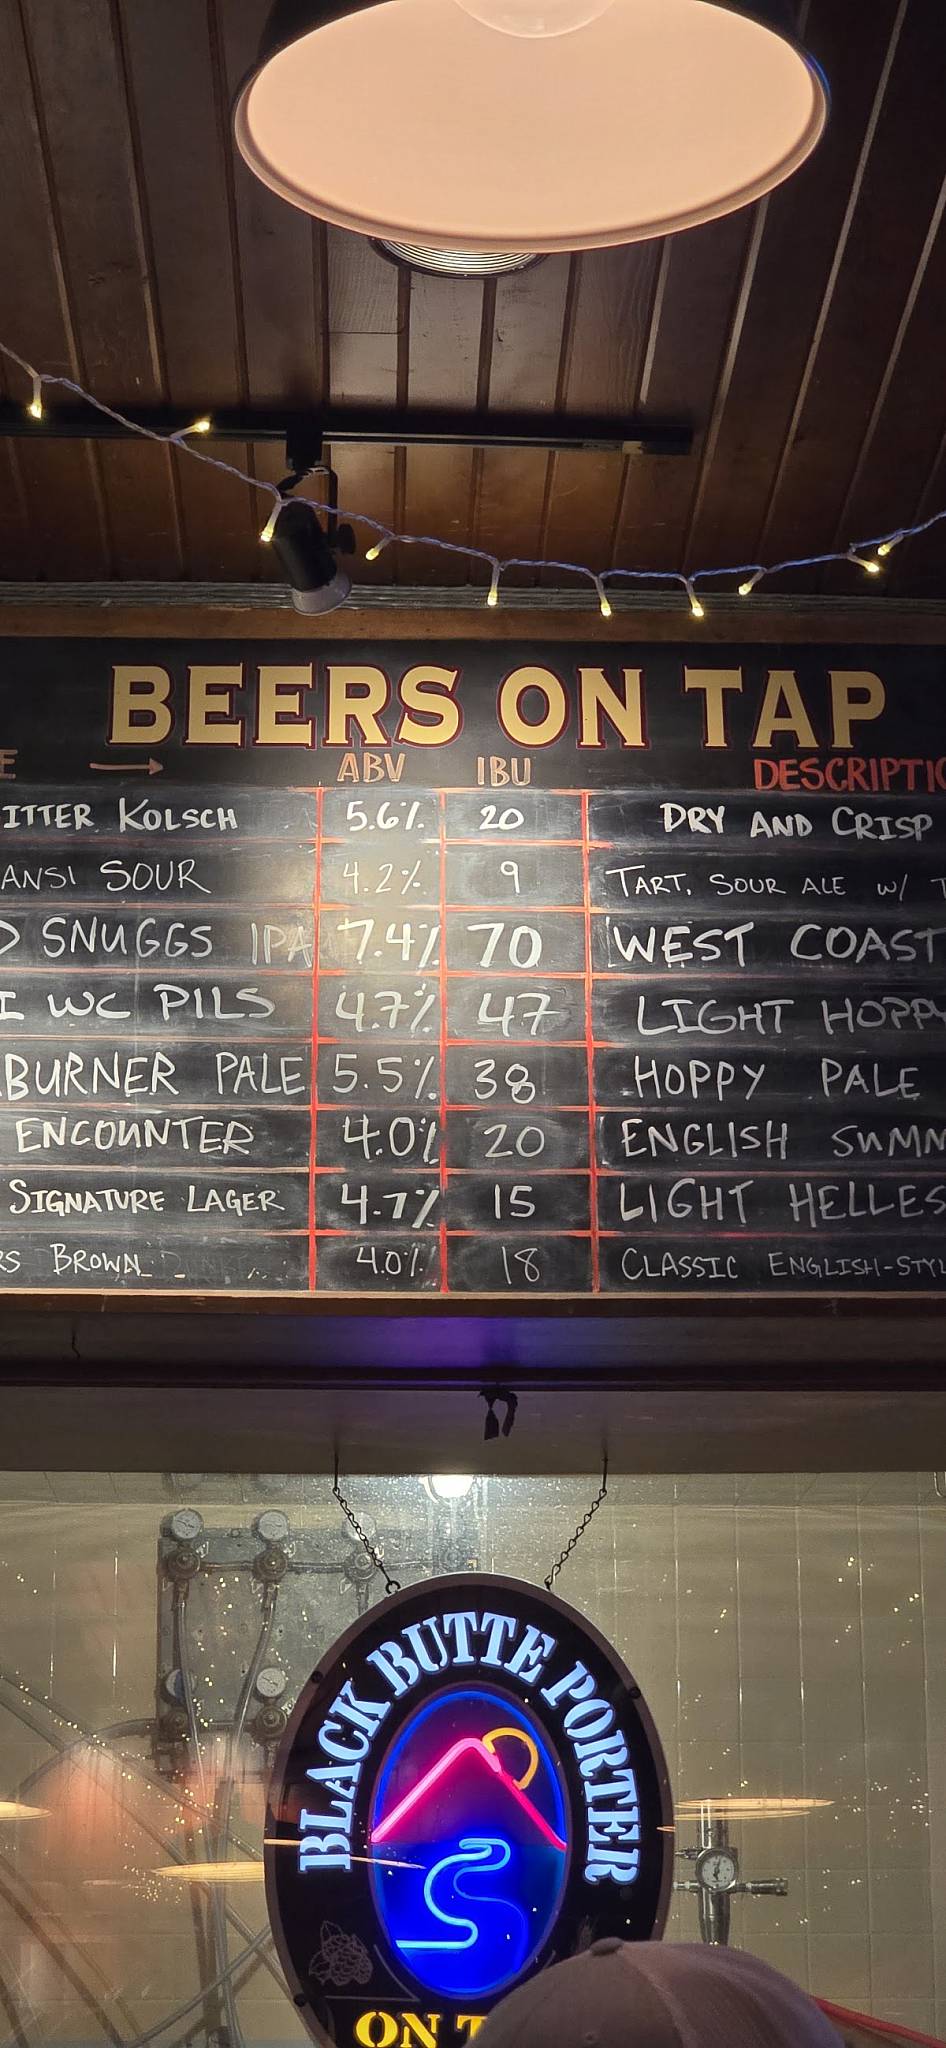 BEERS ON TAP
E → ABV IBU DESCRIPTIO
ITTER KOLSCH 5.6% 20 DRY AND CRISP
ANSI SOUR 4.2% 9 TART, SOUR ALE W/ T
D SNUGGS IPA 7.4% 70 WEST COAST
I WC PILS 4.7% 47 LIGHT HOPPY
BURNER PALE 5.5% 38 HOPPY PALE
ENCOUNTER 4.0% 20 ENGLISH SUMM
SIGNATURE LAGER 4.7% 15 LIGHT HELLES
RS BROWN 4.0% 18 CLASSIC ENGLISH-STYL
BLACK BUTTE PORTER
ON T